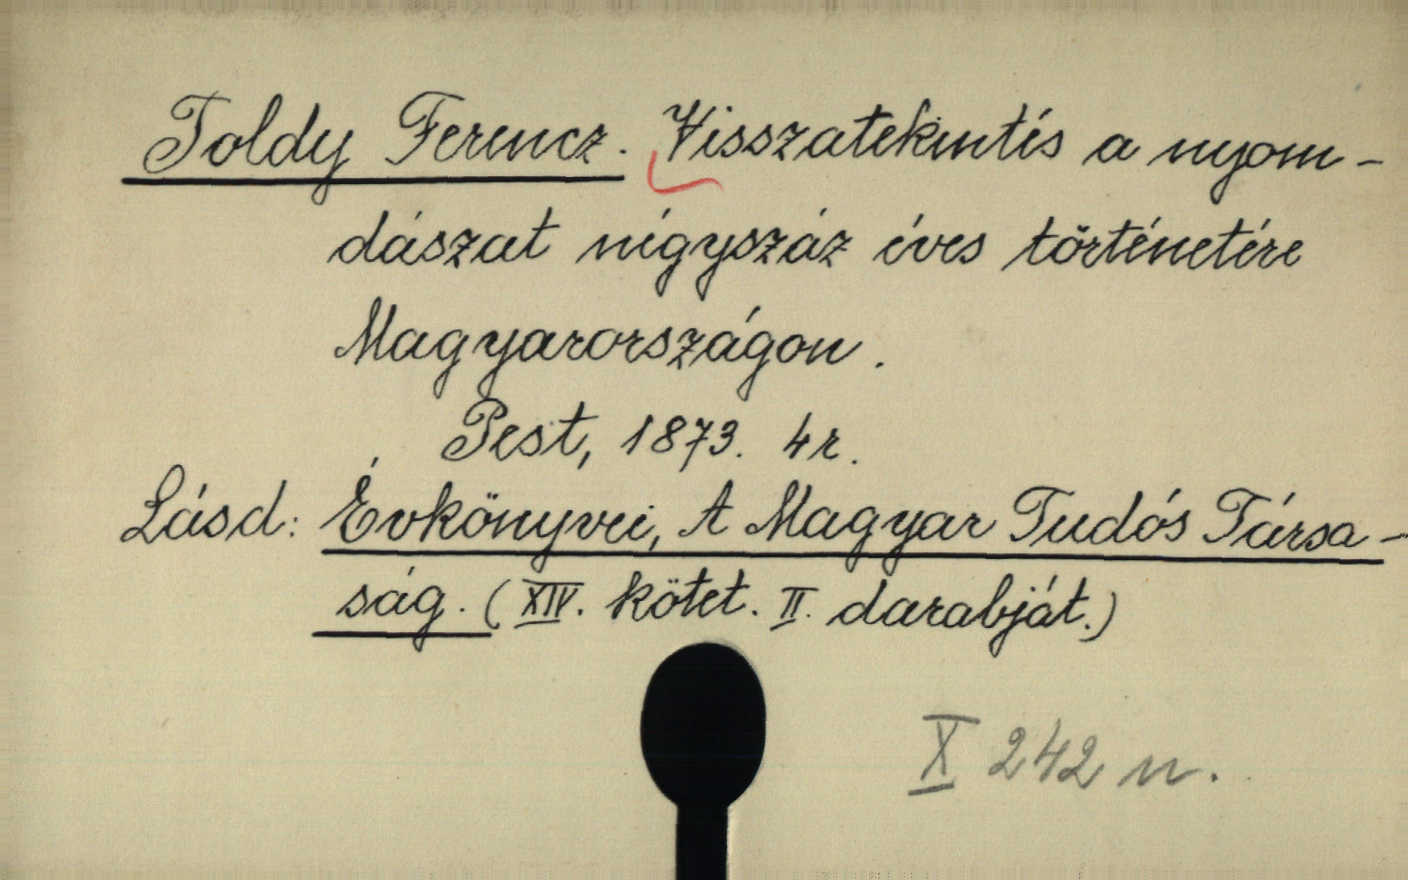 Toldy Ferencz. Visszatekintés a nyom-
dászat négyszáz éves történetére
Magyarországon.
Pest, 1873. 4r.
Lásd: Évkönyvei, A Magyar Tudós Társa-
ság. (XIV. kötet. II. darabját.)
X 242 n.